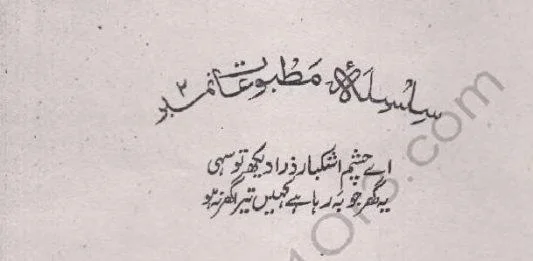 سلسلۂ مطبوعات نمبر ۲
اے چشم اشکبار ذرا دیکھ تو سہی
یہ گھر جو بہ رہا ہے کہیں تیرا گھر نہ ہو
.com